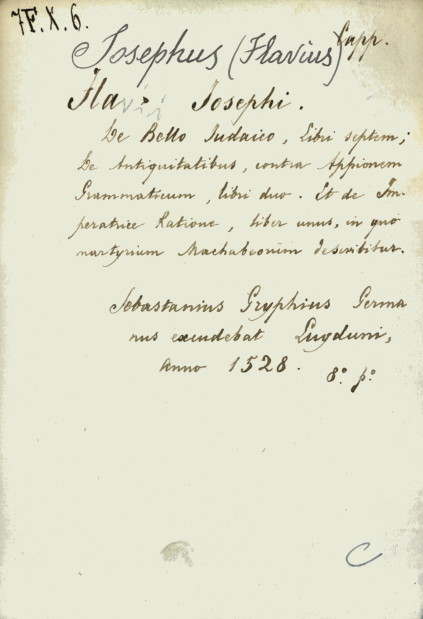 7F.X.6.
Josephus (Flavius) Capp.
Flavii Josephi.
De Bello Judaico, libri septem;
De Antiquitatibus, contra Appionem
Grammaticum, libri duo. Et de Im-
peratrice Ratione, liber unus, in quo
martyrium Machabeorum describitur.
Sebastanius Gryphius Germa
nus excudebat Lugduni,
anno 1528.
8º. pº.
C